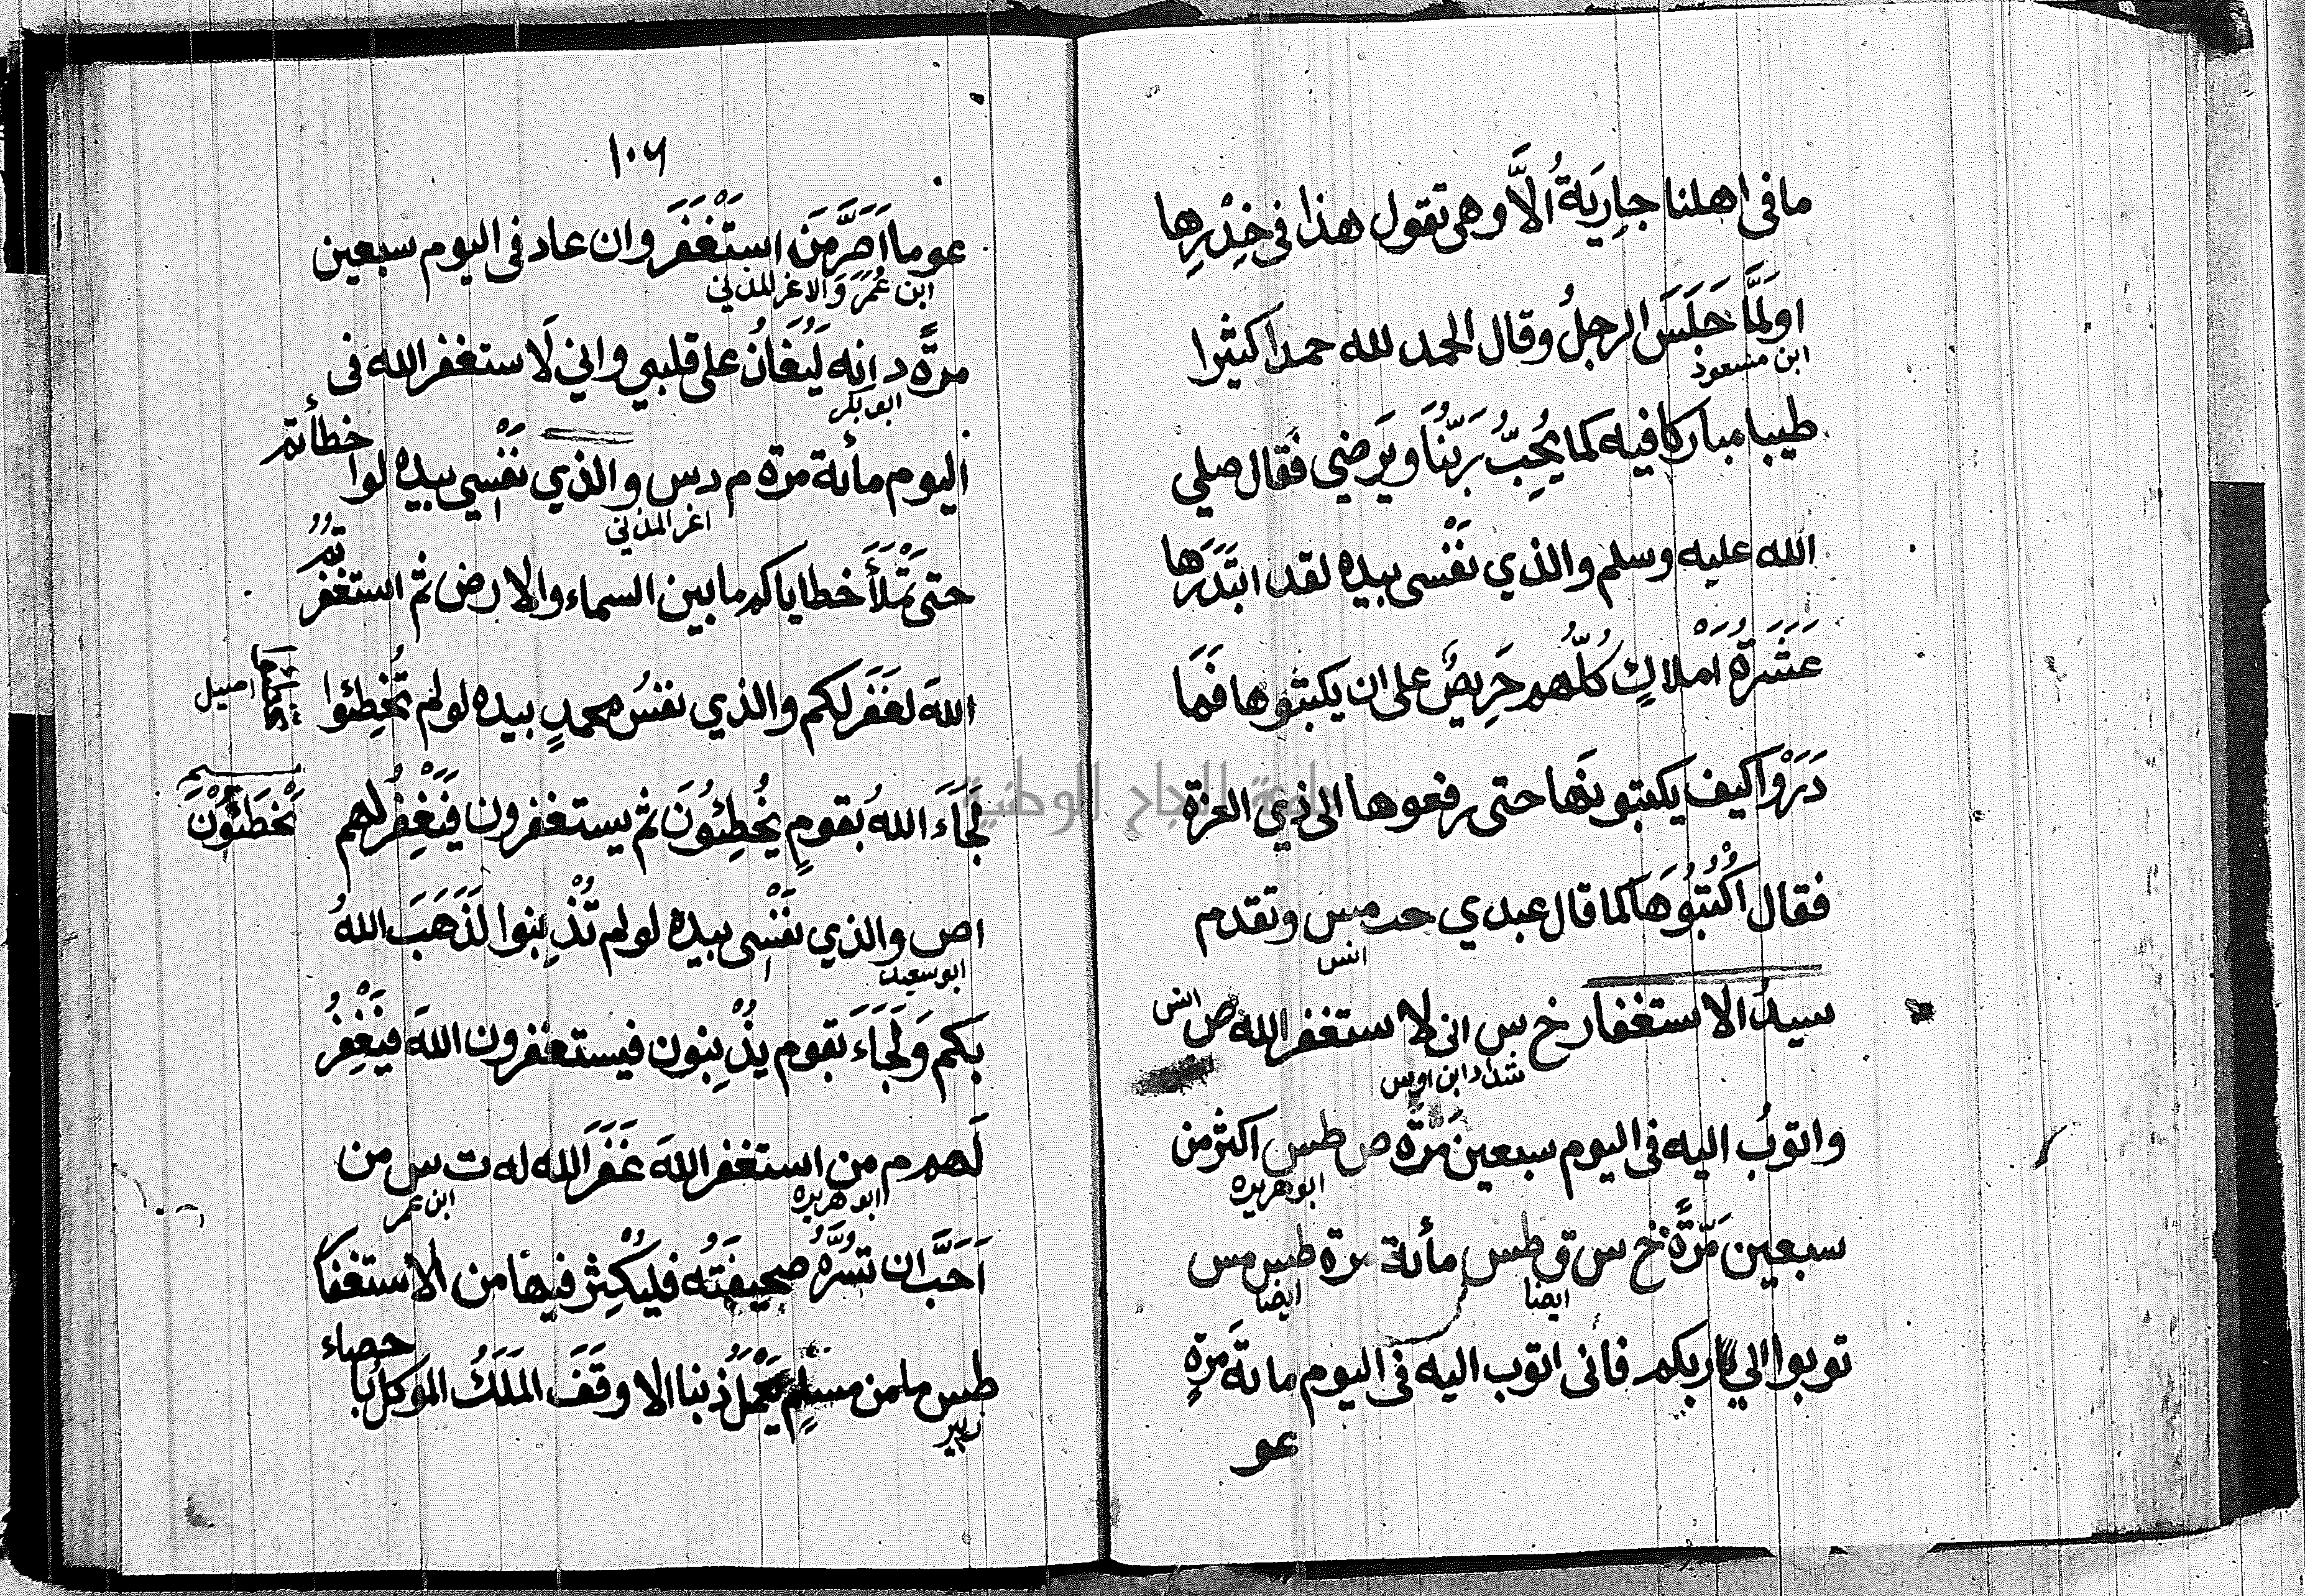 ما فى اهلنا جارِيَةُ الَّا وهى تقول هذا فى خِدْرِها
او لَمَّا جَلَسَ الرجلُ وقال الحمد لله حمدا كثيرا
ابن مسعود
طيبا مباركا فيه كما يُحِبُّ رَبُّنَا وَيَرضي فقال صلي
الله عليه وسلم والذي نَفْسى بيده لقد ابتَدَرَها
عَشَرَةُ اَمْلاكٍ كُلُّهم حَرِيصٌ على ان يكبتوها فَمَا
دَرَوْا كيف يكبتونها حتى رفعوها الى ذي العزة
فقال اكْتُبُوْهَا كما قال عبدي حب مس وتقدم
انس
سيدُ الاستغفار خ س انى لاستغفر الله ص انس
شداد ابن اوس
واتوبُ اليه فى اليوم سبعين مَرَّةً ص طس اكثر من
ابو هريره
سبعين مَرَّةً خ س ق طس مأئة مرة طس مس
ايضا ايضا
توبوا الي ربكم فانى اتوب اليه فى اليوم مائة مَرةٍ
عو
١٠٦
عو ما اَصَرَّ مَنِ اسْتَغْفَرَ وان عاد فى اليوم سبعين
ابن عُمَرَ وَالاغر المدني
مرةً د انه لَيُغَانُ على قلبي واني لَاستغفر الله فى
ابو بكر
اليوم مائة مرة م د س والذي نَفْسِي بيده لوا خطأتم
اغر المدني
حتى تَمْلَأَ خطاياكم ما بين السماء والارض ثم استغفرتُمُ
اللهَ لغَفَرَ لكم والذي نفسُ محمدٍ بيده لو لم تُخطِئوا
اصيل
لَجَاءَ اللهُ بقومٍ يُخطِئوُنَ ثم يستغفرون فَيَغْفِرُ لهم
يَخْطَئوُنْ
اص والذي نَفْسِى بيده لو لم تُذْنِبوا لَذَهَبَ اللهُ
ابو سعيد
بكم وَلَجَاءَ بقوم يُذْنِبون فيستغفرون اللهَ فيَغْفِرُ
لَهم م من استغفر اللهَ غَفَرَ الله له ت س من
ابو هريره ابن عمر
اَحَبَّ ان تَسُرَّهُ صحيفَتُه فليُكْثِر فيها من الاستغفا
طس ما من مسلِمٍ يَعْمَلُ ذنبا الا وقَفَ المَلَكُ الموكلُ با حصاء
زبير